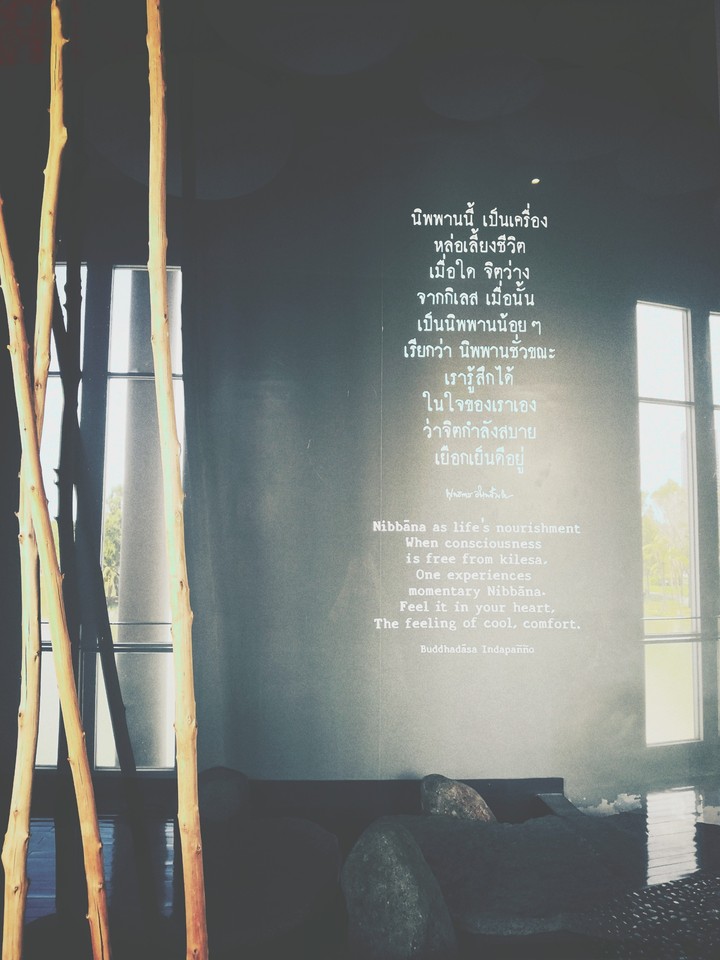 นิพพานนี้ เป็นเครื่อง
หล่อเลี้ยงชีวิต
เมื่อใด จิตว่าง
จากกิเลส เมื่อนั้น
เป็นนิพพานน้อย ๆ
เรียกว่า นิพพานชั่วขณะ
เรารู้สึกได้
ในใจของเราเอง
ว่าจิตกำลังสบาย
เยือกเย็นดีอยู่
Nibbāna as life's nourishment
When consciousness
is free from kilesa.
One experiences
momentary Nibbāna.
Feel it in your heart,
The feeling of cool, comfort.
Buddhadāsa Indapañño